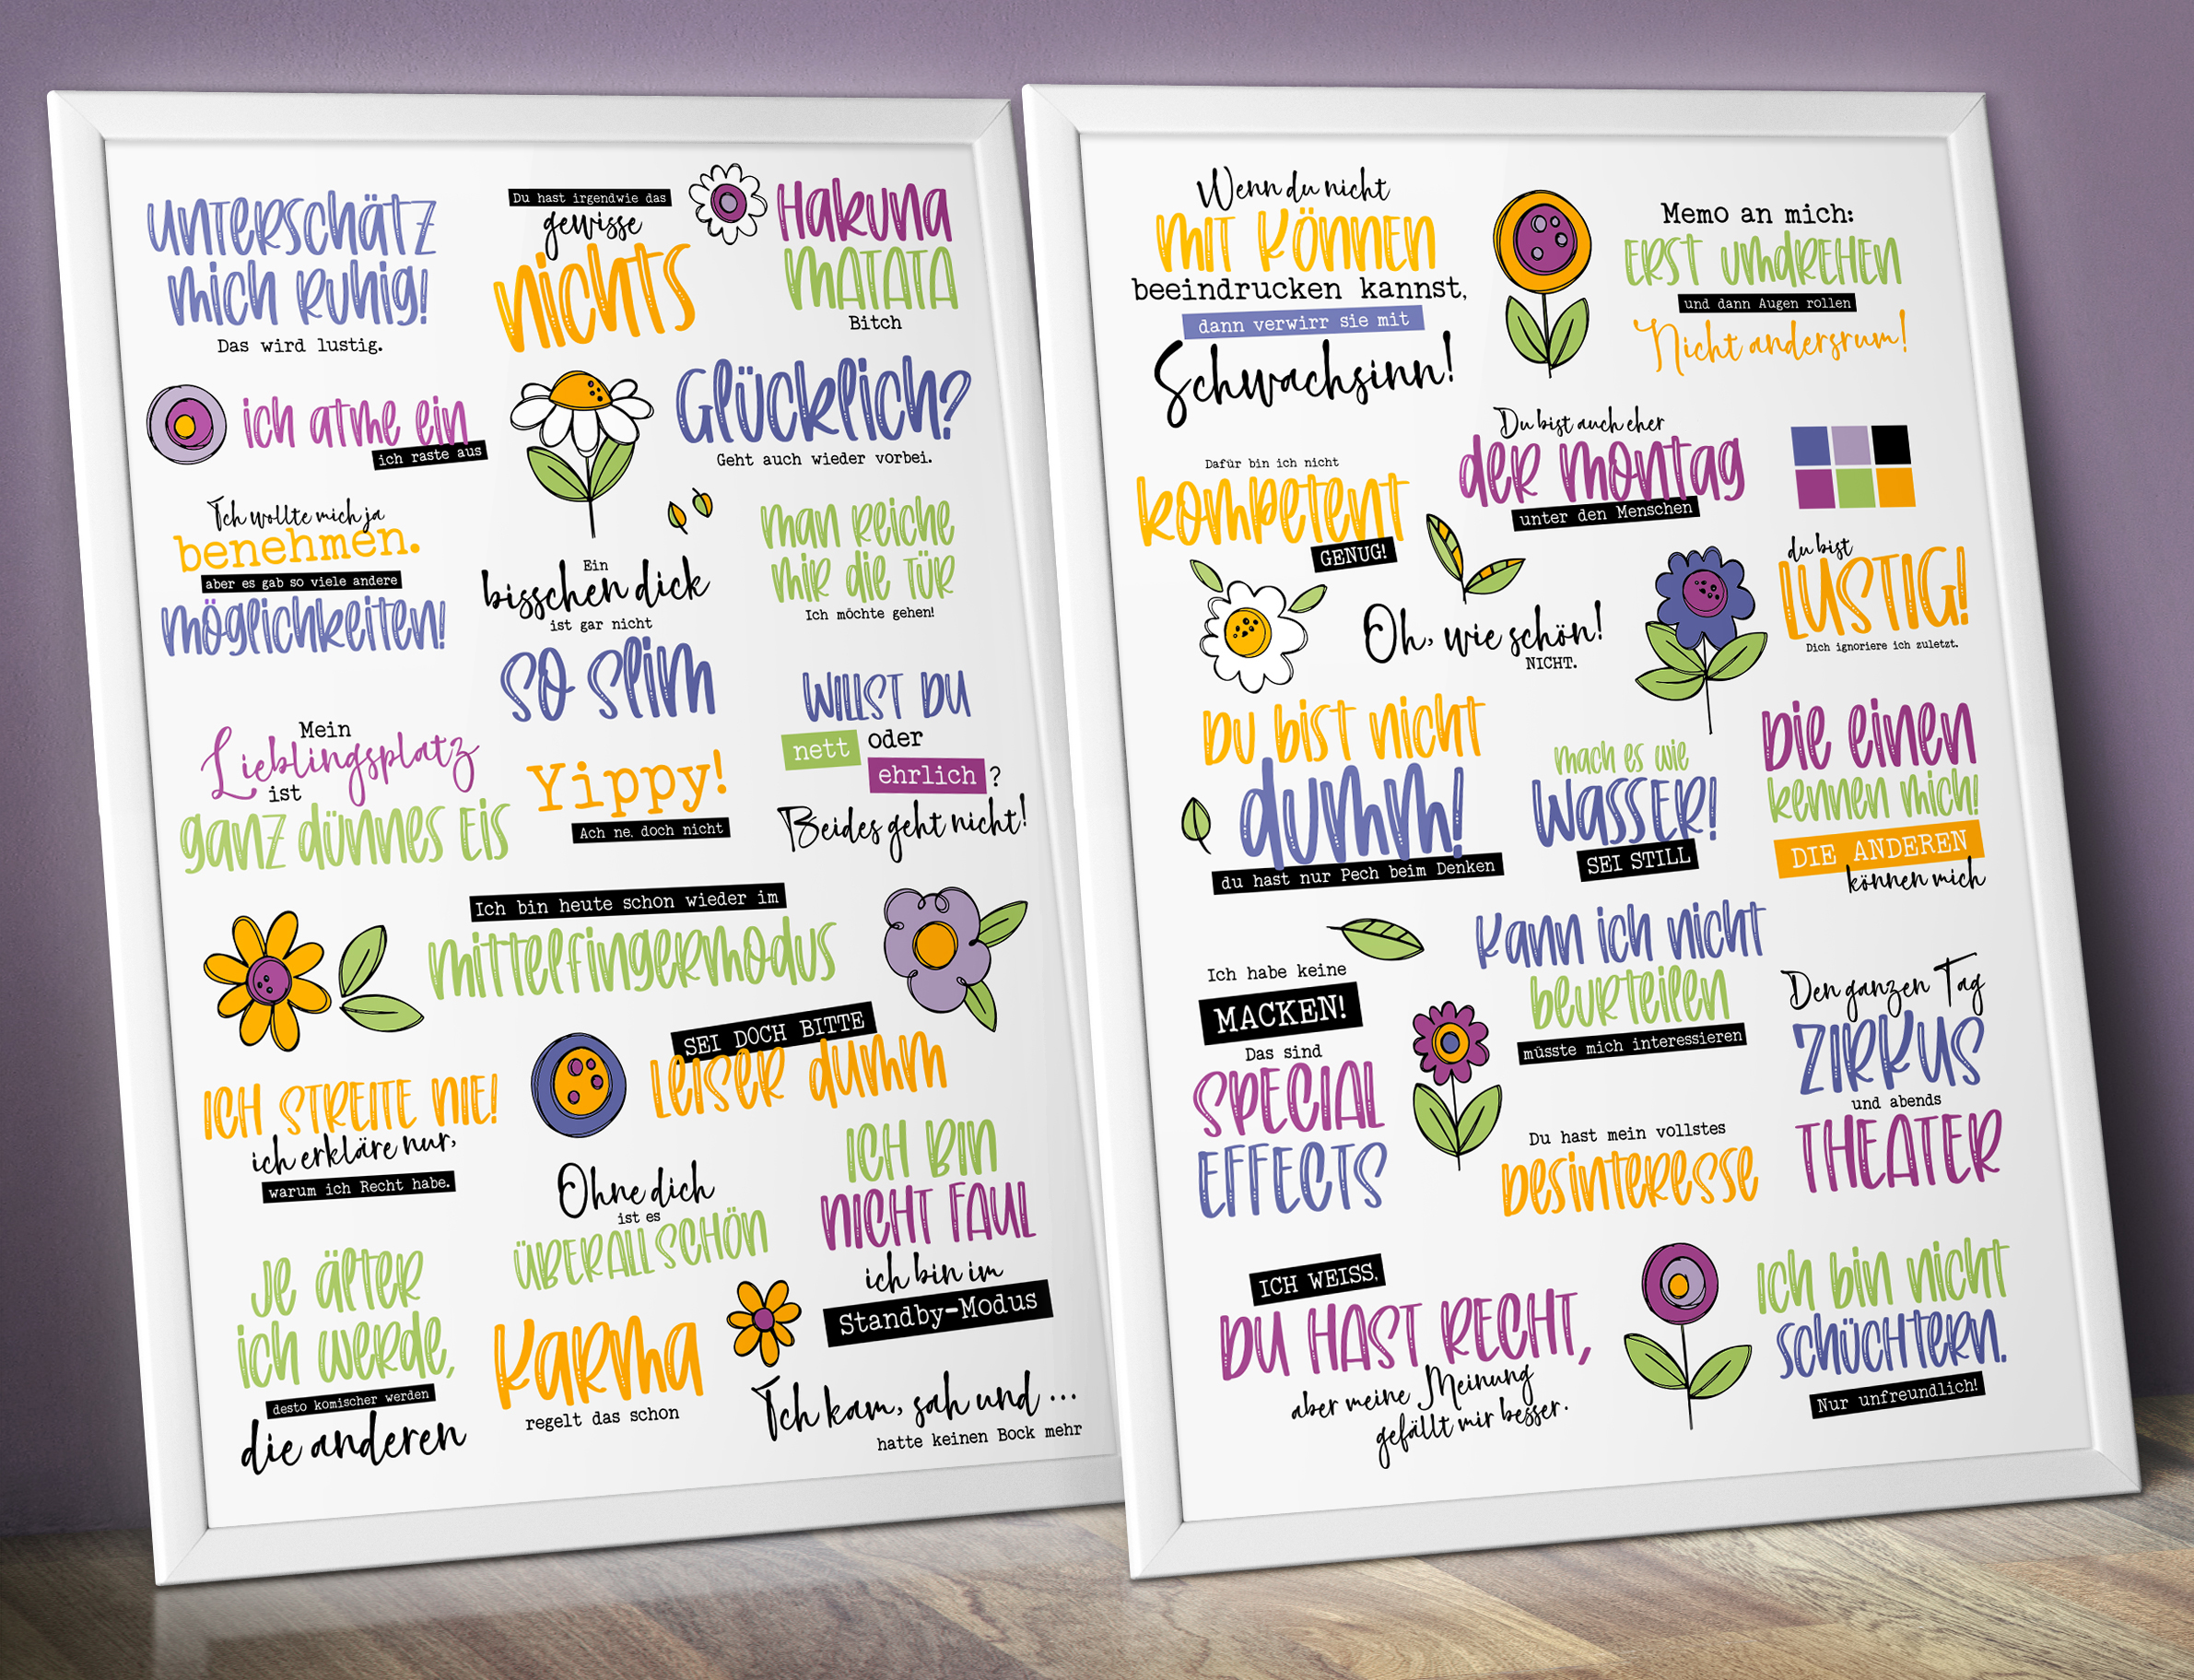 unterschätz
mich ruhig!
Das wird lustig.
Du hast irgendwie das
gewisse
nichts
Hakuna
MATATA
Bitch
ich atme ein
ich raste aus
Glücklich?
Geht auch wieder vorbei.
Ich wollte mich ja
benehmen.
aber es gab so viele andere
möglichkeiten!
Ein
bisschen dick
ist gar nicht
so slim
man reiche
mir die Tür
Ich möchte gehen!
Mein
Lieblingsplatz
ist
ganz dünnes Eis
Yippy!
Ach ne. doch nicht
WILLST DU
nett oder
ehrlich ?
Beides geht nicht!
Ich bin heute schon wieder im
mittelfingermodus
SEI DOCH BITTE
leiser dumm
ICH STREITE NIE!
ich erkläre nur,
warum ich Recht habe.
Ohne dich
ist es
ÜBERALL SCHÖN
ICH BIN
NICHT FAUL
ich bin im
Standby-Modus
Je älter
ich werde,
desto komischer werden
die anderen
Karma
regelt das schon
Ich kam, sah und ...
hatte keinen Bock mehr
Wenn du nicht
mit Können
beeindrucken kannst,
dann verwirr sie mit
Schwachsinn!
Memo an mich:
ERST UMDREHEN
und dann Augen rollen
Nicht andersrum!
Dafür bin ich nicht
kompetent
GENUG!
Du bist auch eher
der montag
unter den Menschen
Oh, wie schön!
NICHT.
du bist
LUSTIG!
Dich ignoriere ich zuletzt.
Du bist nicht
dumm!
du hast nur Pech beim Denken
mach es wie
wasser!
SEI STILL
Die einen
kennen mich!
DIE ANDEREN
können mich
Ich habe keine
MACKEN!
Das sind
SPECIAL
EFFECTS
Kann ich nicht
beurteilen
müsste mich interessieren
Den ganzen Tag
ZIRKUS
und abends
THEATER
Du hast mein vollstes
Desinteresse
ICH WEISS,
DU HAST RECHT,
aber meine Meinung
gefällt mir besser.
Ich bin nicht
schüchtern.
Nur unfreundlich!